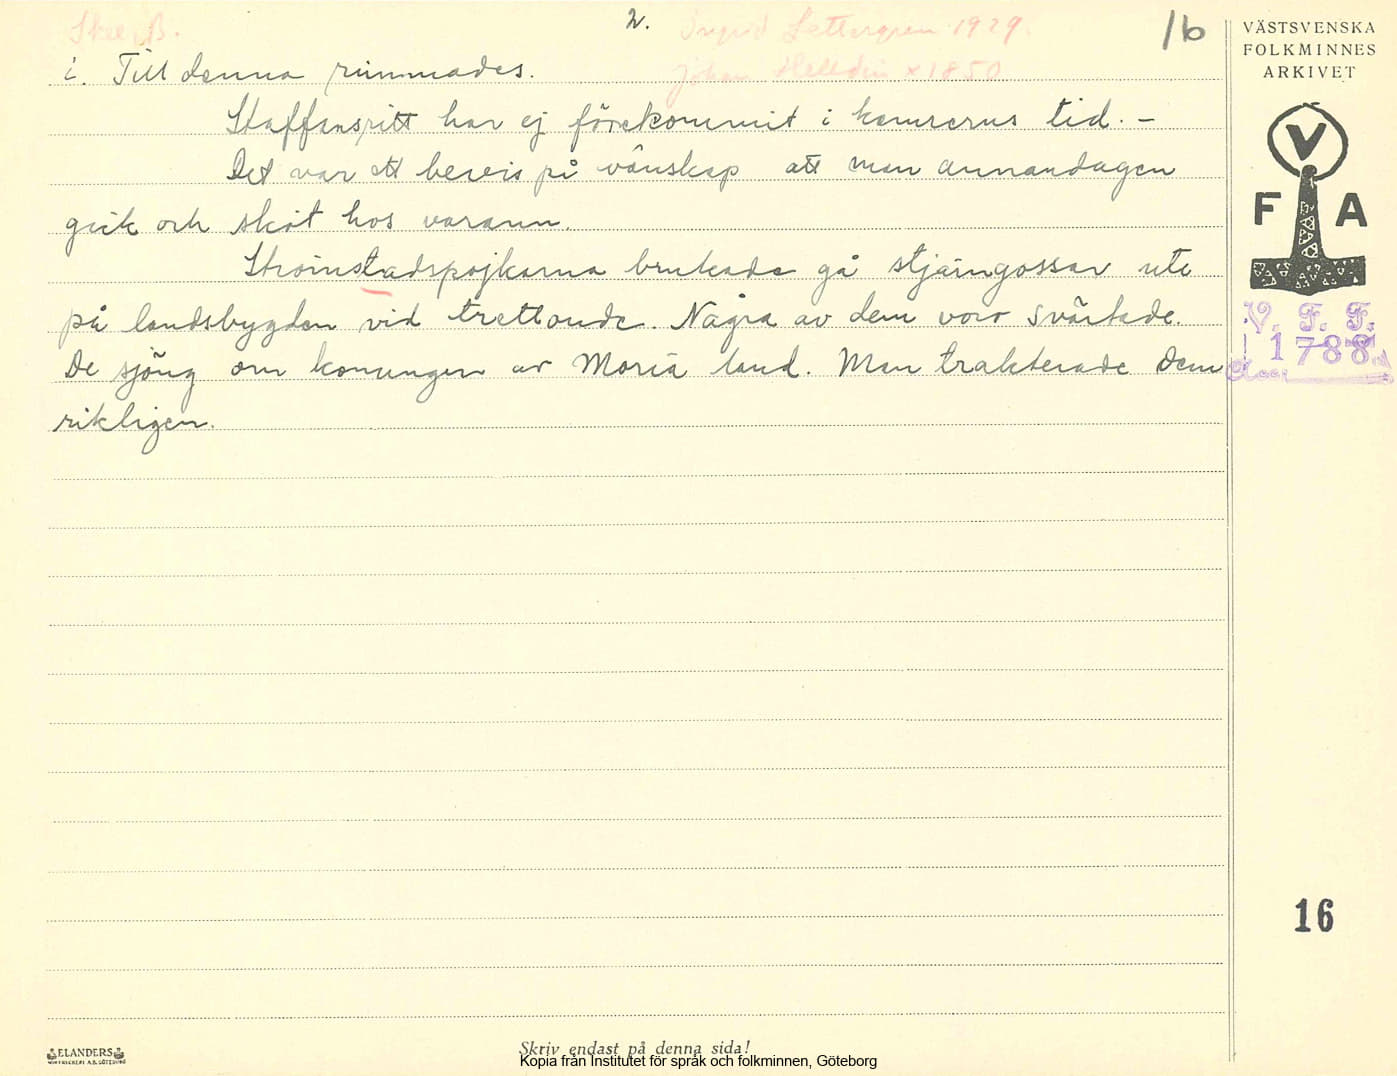 Skee, B.
2.
Ingrid Settergren 1929.
16
Johan Helldin * 1850
i. Till denna rimmades.
Staffansritt har ej förekommit i kamrerns tid. –
Det var ett bevis på vänskap att man annandagen
gick och sköt hos varann.
Strömstadspojkarna brukade gå stjärngossar ute
på landsbygden vid trettonde. Några av dem voro svärtade.
De sjöng om konungen av Moria land. Man trakterade dem
rikligen.
VÄSTSVENSKA
FOLKMINNES
ARKIVET
V
F A
V. F. F.
1788
16
ELANDERS
Skriv endast på denna sida!
Kopia från Institutet för språk och folkminnen, Göteborg